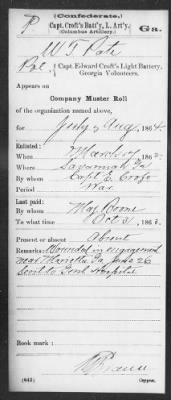 (Confederate.)
P Capt. Croft's Batt'y, L. Art'y. Ga.
(Columbus Artillery.)
W T Pate
Pvt., Capt. Edward Croft's Light Battery,
Georgia Volunteers.
Appears on
Company Muster Roll
of the organization named above,
for July & Aug, 1864.
Enlisted:
When March 17, 1862.
Where Savannah Ga
By whom Capt E. Croft
Period War
Last paid:
By whom Maj Boone
To what time Oct 31, 1863.
Present or absent Absent
Remarks: Wounded in engagement
near Marietta Ga, June 26
Sent to Genl Hospital
Book mark:
(642) Copyist.